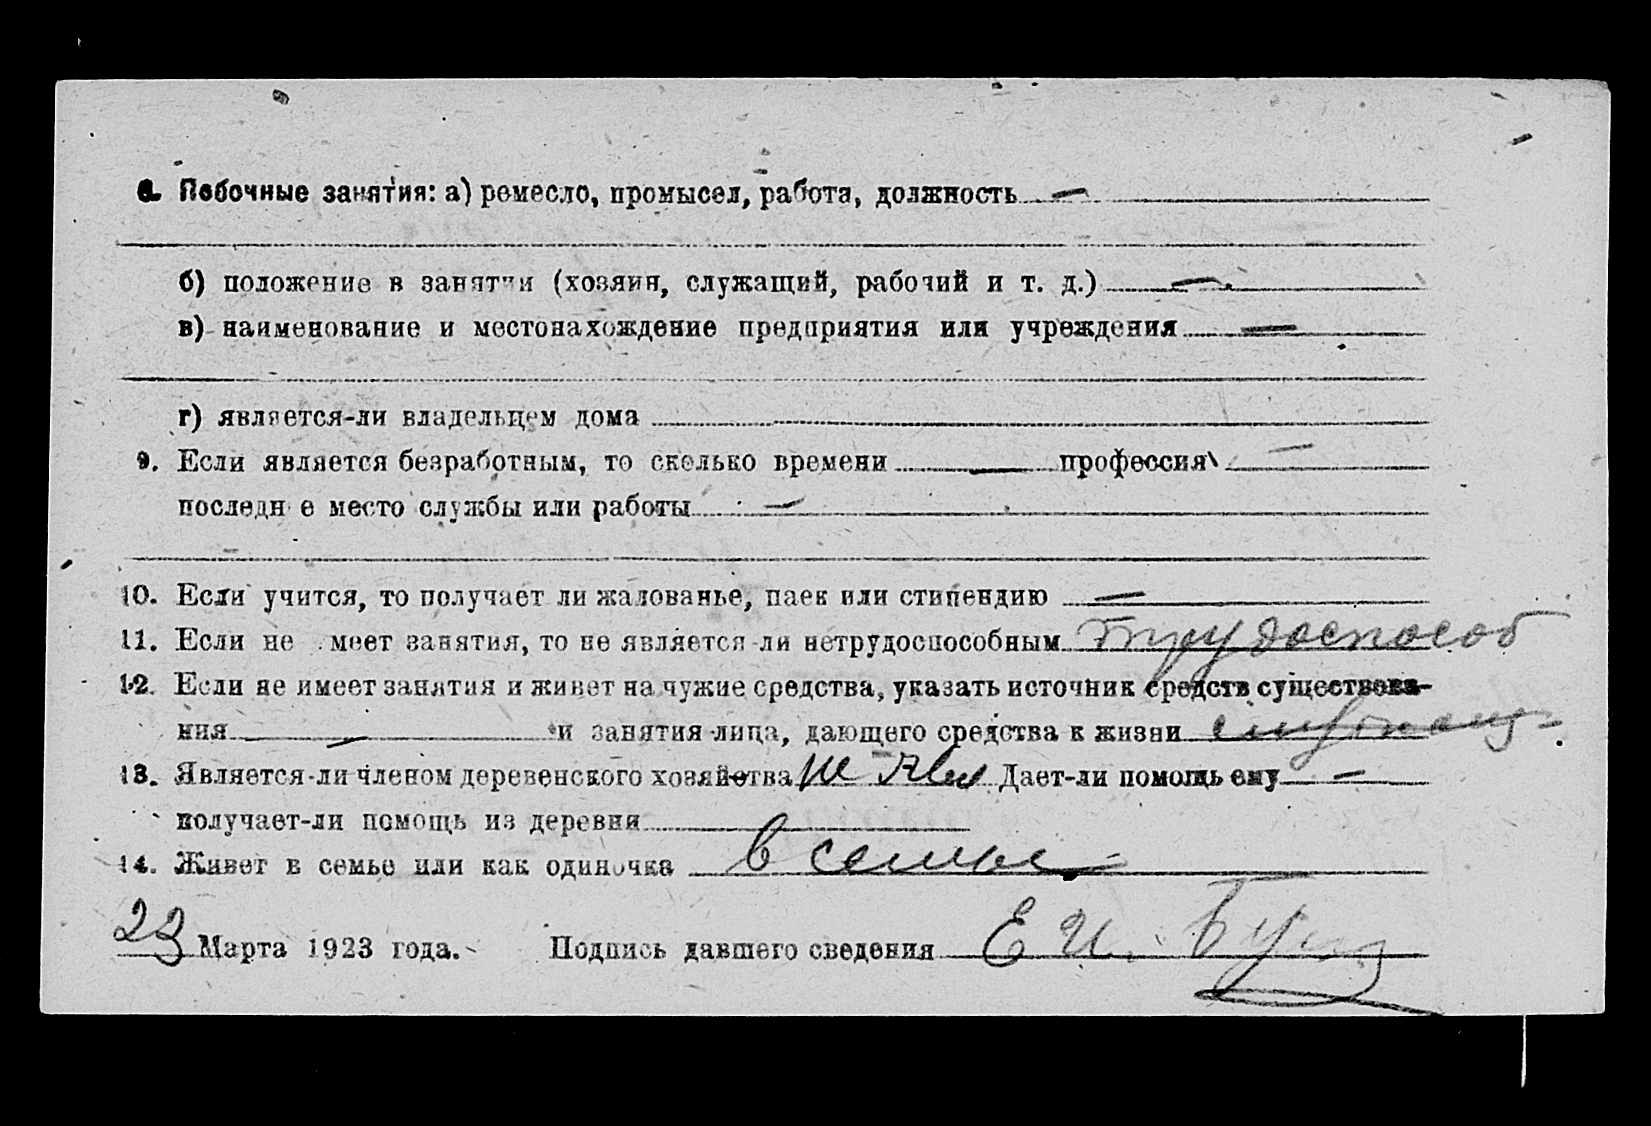 8. Побочные занятия: а) ремесло, промысел, работа, должность —
б) положение в занятии (хозяин, служащий, рабочий и т. д.) —
в) наименование и местонахождение предприятия или учреждения —
г) является-ли владельцем дома
9. Если является безработным, то сколько времени — профессия —
последн е место службы или работы —
10. Если учится, то получает ли жалованье, паек или стипендию —
11. Если не меет занятия, то не является-ли нетрудоспособным трудоспособ
12. Если не имеет занятия и живет на чужие средства, указать источник средств существова-
ния — и занятия лица, дающего средства к жизни
13. Является-ли членом деревенского хозяйства не явл Дает-ли помощь ему —
получает-ли помощь из деревни
14. Живет в семье или как одиночка в семье
23 Марта 1923 года. Подпись давшего сведения Е И.